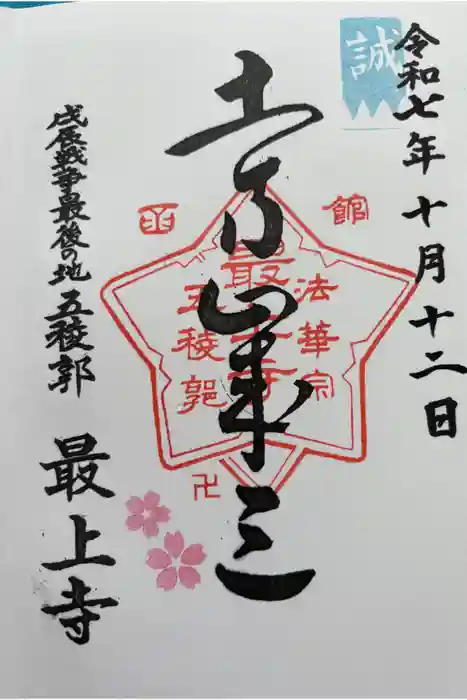 令和七年十月十二日
誠
土方歳三
館
函
法華宗
最上寺
五稜郭
卍
戊辰戦争最後の地 五稜郭
最上寺